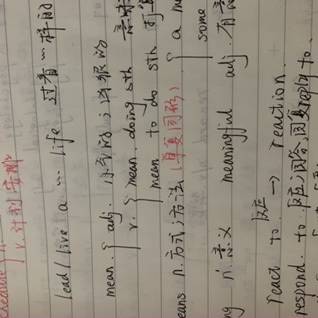 v.计划安排
lead/live a ... life 过着一样的
mean { adj. 小气的；
v. { mean doing sth 意味
mean to do sth 打
means n.方式；方法（单复同形） { a m
some
n.意义 meaningful adj. 有意
react to 反应 → reaction
respond to 反应；回答，回复 reply to